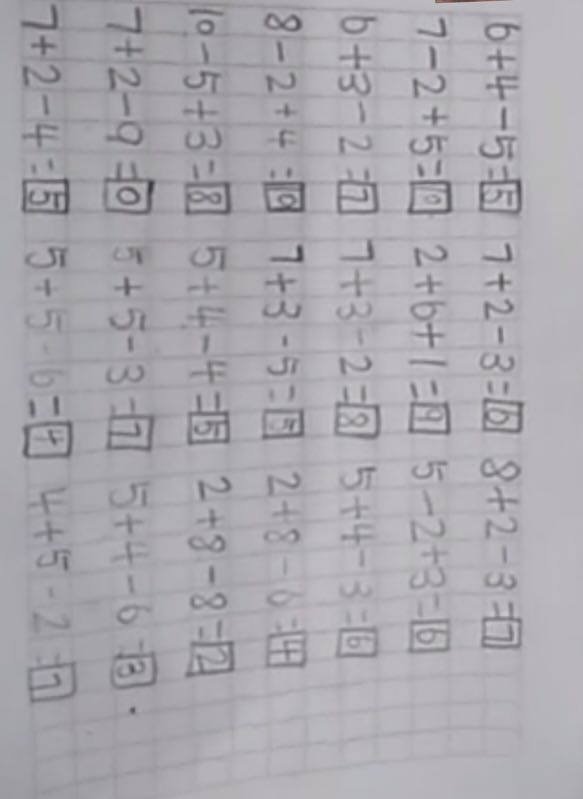 6+4-5=5 7+2-3=6 8+2-3=7
7-2+5=10 2+6+1=9 5-2+3=6
6+3-2=7 7+3-2=8 5+4-3=6
8-2+4=10 7+3-5=5 2+8-6=4
10-5+3=8 5+4-4=5 2+8-8=2
7+2-9=0 5+5-3=7 5+4-6=3.
7+2-4=5 5+5-6=4 4+5-2=7